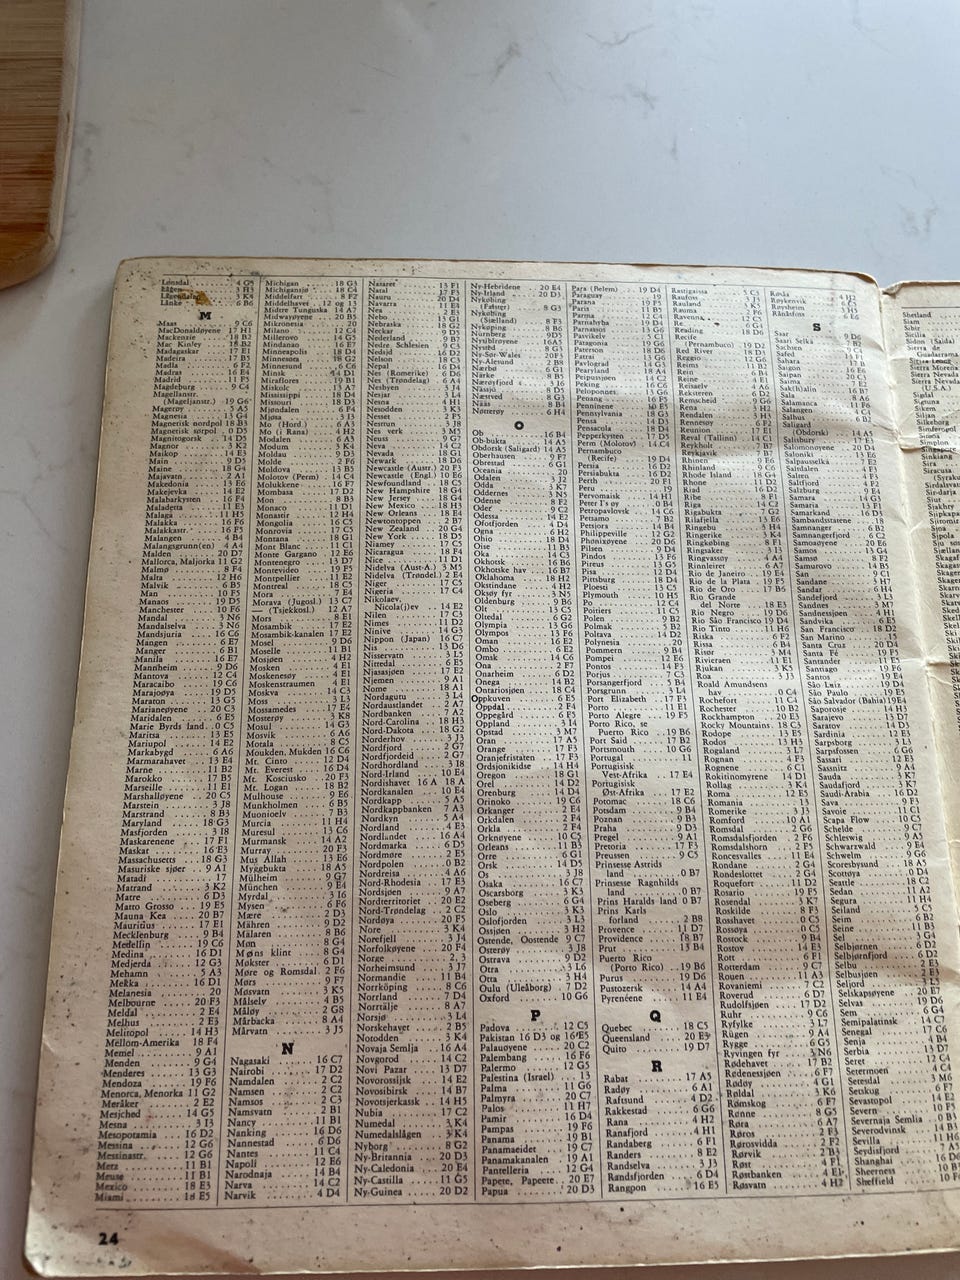 Lånke 6 B6
M
Maas 9 C6
MacDonaldøyene 17 H1
Mackenzie 18 B2
Mac Kinley 18 B2
Madagaskar 17 E1
Madeira 17 B5
Madla 6 F2
Madras 16 E4
Madrid 11 F5
Magdeburg 9 C4
Magellanstr.
(Mageljanstr.) 19 G6
Magerøy 5 A5
Magnesia 13 G4
Magnetisk nordpol 18 B3
Magnetisk sørpol 0 D5
Magnitogorsk 14 D5
Magnor 3 K2
Maikop 14 E3
Main 9 D5
Maine 18 G4
Majavatn 2 A1
Makedonia 13 E6
Makejevka 14 E2
Malabarkysten 16 F4
Maladetta 11 E3
Malaga 11 H5
Malakka 16 F6
Malakkastr. 16 F5
Malangen 4 B4
Malangsgrunn(en) 4 A4
Malden 20 D7
Mallorca, Maljorka 11 G2
Malmø 8 F4
Malta 12 H6
Malvik 6 B5
Man 10 F5
Manaos 19 D5
Manchester 10 F6
Mandal 3 N6
Mandalselva 3 N6
Mandsjuria 16 C6
Mangen 6 E7
Manger 6 B1
Manila 16 E7
Mannheim 9 D6
Mantova 12 C4
Maracaibo 19 C6
Marajoøya 19 D5
Maraton 13 G5
Marianeøyene 20 C3
Maridalen 6 E5
Marie Byrds land 0 C5
Maritsa 13 E5
Mariupol 14 E2
Markabygd 6 A6
Marmarahavet 13 E4
Marne 11 B2
Marokko 17 B5
Marseille 11 E1
Marshalløyene 20 C5
Marstein 3 J8
Marstrand 8 B3
Maryland 18 G3
Masfjorden 3 I8
Maskarenene 17 F1
Maskat 16 E3
Massachusetts 18 G3
Masuriske sjøer 9 A1
Matadi 17
Matrand 3 K2
Matre 6 D3
Matto Grosso 19 E5
Mauna Kea 20 B7
Mauritius 17 E1
Mecklenburg 9 B4
Medellin 19 C6
Medina 16 D1
Medjerda 12 G3
Mehamn 5 A3
Mekka 16 D1
Melanesia 20
Melbourne 20 F3
Meldal 2 E4
Melhus 2 E3
Melitopol 14 H3
Mellom-Amerika 18 F4
Memel 9 A1
Menden 9 G4
Menderes 13 G3
Mendoza 19 F6
Menorca, Menorka 11 G2
Meråker 2 E2
Mesjched 14 G5
Mesna 3 I3
Mesopotamia 16 D2
Messina 12 G6
Messinastr. 12 G6
Metz 11 B1
Meuse 11 B1
Mexico 18 E3
Miami 18 E5
Michigan 18 G3
Michigansjø 18 C4
Middelfart 8 F2
Middelhavet 12 og 13
Midtre Tunguska 14 A7
Midwayøyene 20 B5
Mikronesia 20
Milano 12 C4
Millerovo 14 G5
Mindanao 16 F7
Minneapolis 18 D4
Minnesota 18 G2
Minnesund 6 C6
Minsk 14 D1
Miraflores 19 B1
Miskolc 13 A7
Mississippi 18 D4
Missouri 18 D3
Mjøndalen 6 F4
Mjøsa 3 I3
Mo (Hord.) 6 A3
Mo (i Rana) 4 H2
Modalen 6 A3
Modum 3 K4
Moldau 9 D3
Molde 2 F6
Moldova 13 B5
Molotov (Perm) 14 C4
Molukkene 16 F7
Mombasa 17 D2
Mon 8 B3
Monaco 11 D1
Monastir 12 H4
Mongolia 16 C5
Monrovia 17 C5
Montana 18 G1
Mont Blanc 11 C1
Monte Gargano 12 E6
Montenegro 13 D7
Montevideo 19 F5
Montpellier 11 E2
Montreal 18 C5
Mora 7 E4
Morava (Jugosl.) 13 C7
— (Tsjekkosl.) 12 A7
Mors 8 E1
Mosambik 17 E2
Mosambik-kanalen 17 E2
Mosel 9 D6
Moselle 11 B1
Mosjøen 4 H2
Mosken 4 E1
Moskenesøy 4 E1
Moskenstraumen 4 E1
Moskva 14 C3
Moss 3 L3
Mossamedes 17 E4
Mosterøy 3 K8
Mosul 14 G3
Mosvik 6 A6
Motala 8 C5
Moukden, Mukden 16 C6
Mt. Cinto 12 D4
Mt. Everest 16 D4
Mt. Kosciusko 20 F3
Mt. Logan 18 B2
Mulhouse 9 E6
Munkholmen 6 B5
Muonioelv 7 B3
Murcia 11 H4
Muresul 13 C6
Murmansk 14 A2
Murray 20 F3
Mus Allah 13 E6
Myggbukta 18 A5
Mülheim 9 G7
München 9 E4
Myrdal 3 I6
Mysen 6 F6
Mære 2 D3
Mähren 9 D2
Mälaren 8 B6
Møn 8 G4
Møns klint 8 G4
Møkster 6 D1
Møre og Romsdal 2 F6
Mørs 9 F7
Møsvatn 3 K5
Målselv 4 B5
Måløy 2 G8
Mårbacka 8 A4
Mårvatn 3 J5
N
Nagasaki 16 C7
Nairobi 17 D2
Namdalen 2 C2
Namsen 2 C2
Namsos 2 C3
Namsvatn 2 B1
Nancy 11 B1
Nanking 16 D6
Nannestad 6 D6
Nantes 11 C4
Napoli 12 E6
Narodnaja 14 B4
Narva 14 C2
Narvik 4 D4
Nasaret 13 F1
Natal 17 F3
Nauru 20 D4
Navarra 11 E4
Nes 3 E2
Nebo 13 G1
Nebraska 18 G2
Neckar 9 D5
Nederland 9 B7
Nedre Schlesien 9 C3
Nedsjid 16 D2
Nelson 18 C3
Nepal 16 D4
Nes (Romerike) 6 D6
Nes (Trøndelag) 6 A4
Nesbyen 3 J4
Nesjar 3 L4
Nesna 4 H1
Nesodden 3 K3
Nesset 2 F5
Nestrun 3 J8
Nes verk 3 M5
Neuss 9 G7
Neva 14 C2
Nevada 18 G1
Newark 18 D6
Newcastle (Austr.) 20 F3
Newcastle (Engl.) 10 E6
Newfoundland 18 C5
New Hampshire 18 G4
New Jersey 18 G4
New Mexico 18 H3
New Orleans 18 E4
Newtontoppen 2 B7
New Zealand 20 G4
New York 18 D5
Niamey 17 C5
Nicaragua 18 F4
Nice 11 D1
Nidelva (Aust-A.) 3 M5
Nidelva (Trøndel.) 2 E4
Niger 17 C5
Nigeria 17 C4
Nikolaev,
Nicola(j)ev 14 E2
Nilen 17 C3
Nimes 11 D2
Ninive 14 G3
Nippon (Japan) 16 C7
Nis 13 D6
Nisservatn 3 L5
Nittedal 6 E5
Njasajøen 17 E2
Njemen 9 A1
Nome 18 A1
Nordagutu 3 L4
Nordaustlandet 2 A7
Nordbanken 7 A2
Nord-Carolina 18 H3
Nord-Dakota 18 G2
Norderhov 3 J3
Nordfjord 2 G7
Nordfjordeid 2 G7
Nordhordland 3 I8
Nord-Irland 10 E4
Nordishavet 16 A 18 A
Nordkanalen 10 E4
Nordkapp 5 A5
Nordkappbanken 7 A3
Nordkyn 5 A4
Nordland 4 E3
Nordlandet 16 A4
Nordmarka 6 D5
Nordmøre 2 E5
Nordpolen 0 B2
Nordreisa 4 A6
Nord-Rhodesia 17 E3
Nordsjøen 9 A7
Nordterritoriet 20 E2
Nord-Trøndelag 2 C2
Nordøya 20 F5
Nore 3 K4
Norefjell 3 J4
Norfolkøyene 20 F4
Norge 2, 3
Norheimsund 3 J7
Normandie 11 B4
Norrköping 8 C6
Norrland 7 D4
Norrtälje 8 A7
Norsjø 3 L4
Norskehavet 2 B5
Notodden 3 K4
Novaja Semlja 16 A4
Novgorod 14 C2
Novi Pazar 13 D7
Novorossijsk 14 E2
Novosibirsk 14 B7
Novotsjerkassk 14 H5
Nubia 17 C2
Numedal 3 K4
Numedalslågen 3 K4
Nyborg 8 G2
Ny-Britannia 20 D3
Ny-Caledonia 20 E4
Ny-Castilla 11 G5
Ny-Guinea 20 D2
Ny-Hebridene 20 E4
Ny-Irland 20 D3
Nykøbing
(Falster) 8 G3
Nykøbing
(Sjælland) 8 F3
Nyköping 8 B6
Nürnberg 9 D5
Nysibirøyene 16 A5
Nystad 8 G3
Ny-Sør-Wales 20 F3
Ny-Ålesund 2 B8
Nærbø 6 G1
Närke 8 B5
Nærøyfjord 3 I6
Nässjö 8 D5
Næstved 8 G3
Nääs 8 B4
Nøtterøy 6 H4
O
Ob 16 B4
Ob-bukta 14 A5
Obdorsk (Saligard) 14 A5
Oberhausen 9 F7
Obrestad 6 G1
Oceania 20
Odalen 3 J2
Odda 3 K7
Oddernes 3 N5
Odense 8 F2
Oder 9 C2
Odessa 14 E2
Ofotfjorden 4 D4
Ogna 6 H2
Ohio 18 D4
Oise 11 B3
Oka 14 D3
Okhotsk 16 B6
Okhotske hav 16 B7
Oklahoma 18 H2
Okstindane 4 H2
Oksøy fyr 3 N5
Oldenburg 9 B6
Olt 13 C5
Oltedal 6 G2
Olympia 13 G6
Olympos 13 F6
Oman 16 E2
Ombo 6 E2
Omsk 14 C6
Ona 2 F7
Onarheim 6 D2
Onega 14 B2
Ontariosjøen 18 C4
Oppkuven 6 E5
Oppdal 2 F4
Oppegård 6 F5
Oppland 3 I4
Opstad 3 M7
Oran 17 A5
Orange 17 F3
Oranjefristaten 17 F3
Ordsjonikidse 14 H4
Oregon 18 G1
Orel 14 D2
Orenburg 14 D4
Orinoko 19 C6
Orkanger 2 E4
Orkdalen 2 F4
Orkla 2 F4
Orknøyene 10 C5
Orleans 11 B3
Orre 6 G1
Orsk 14 D5
Os 3 J8
Osaka 16 C7
Oscarsborg 3 K3
Oseberg 6 G4
Oslo 3 K3
Oslofjorden 3 L3
Ossjøen 3 H2
Ostende, Oostende 9 C7
Osterøy 3 J8
Ostrava 9 D2
Otra 3 L6
Otta 3 H4
Oulu (Uleåborg) 7 D2
Oxford 10 G6
P
Padova 12 C5
Pakistan 16 D3 og 16 E5
Palauøyene 20 C2
Palembang 16 F6
Palermo 12 G5
Palestina (Israel) 13
Palma 11 G6
Palmyra 20 C7
Palos 11 H7
Pamir 16 D4
Pampas 19 F6
Panama 19 B1
Panamaeidet 19 C7
Panamakanalen 19 A1
Pantelleria 12 G4
Papete, Papeete 20 E7
Papua 20 D3
Para (Belem) 19 D4
Paraguay 19
Parana 19 F5
Paris 11 B5
Parma 12 C4
Parnahyba 19 D4
Parnassos 13 G5
Pasvikelv 5 C1
Patagonia 19 G6
Paterson 18 D6
Patras 13 G6
Pavlograd 14 G3
Pearyland 18 A4
Peipussjøen 14 C2
Peking 16 C6
Peloponnes 13 G6
Penang 16 F5
Penninene 10 E5
Pennsylvania 18 G3
Pensa 14 D3
Pensacola 18 D4
Pepperkysten 17 D5
Perm (Molotov) 14 C4
Pernambuco
(Recife) 19 D4
Persia 16 D2
Persiabukta 16 D2
Perth 20 F1
Peru 19
Pervomaisk 14 H1
Peter I's øy 0 B4
Petropavlovsk 14 C6
Petsamo 7 B2
Petsjora 14 B4
Philippeville 12 G2
Phønixøyene 20 D6
Pilsen 9 D4
Pindos 13 F6
Pireus 13 G5
Pisa 12 D4
Pittsburg 18 D4
Ploesti 13 C5
Plymouth 10 H5
Po 12 C4
Poitiers 11 C5
Polen 9 B2
Polmak 5 B2
Poltava 14 D2
Polynesia 20
Pommern 9 B4
Pompei 12 E6
Pontos 14 F6
Porjus 7 C3
Porsangerfjord 5 B4
Porsgrunn 3 L4
Port Elizabeth 17 F3
Porto 11 F7
Porto Alegre 19 F5
Porto Rico, se
Puerto Rico 19 B6
Port Said 17 B2
Portsmouth 10 G6
Portugal 11
Portugisisk
Vest-Afrika 17 E4
Portugisisk
Øst-Afrika 17 E2
Potomac 18 C6
Potsdam 9 B4
Poznan 9 B3
Praha 9 D3
Pregel 9 A1
Pretoria 17 F3
Preussen 9 C5
Prinsesse Astrids
land 0 B7
Prinsesse Ragnhilds
land 0 B7
Prins Haralds land 0 B7
Prins Karls
forland 2 B8
Provence 11 D7
Providence 18 B7
Prut 13 B4
Puerto Rico
(Porto Rico) 19 B6
Purus 19 D6
Pustozersk 14 A4
Pyrenéene 11 E4
Q
Quebec 18 C5
Queensland 20 E3
Quito 19 D7
R
Rabat 17 A5
Radøy 6 A1
Raftsund 4 D2
Rakkestad 6 G6
Rana 4 H2
Ranafjord 4 H1
Randaberg 6 F1
Randers 8 E2
Randselva 3 J3
Randsfjorden 6 D4
Rangpon 16 E5
Rastigaissa 5 C3
Raufoss 3 J3
Rauland 3 K5
Rauma 2 F6
Ravenna 12 C5
Re 6 G4
Reading 18 D6
Recife
(Pernambuco) 19 D2
Red River 18 D3
Reggio 12 G6
Reims 11 B2
Rein 6 B4
Reine 4 E1
Reisaelv 4 A6
Reksteren 6 D2
Remscheid 9 G6
Rena 3 H2
Rendalen 3 H3
Rennesøy 6 F2
Reunion 17 E1
Reval (Tallinn) 14 C1
Reykholt 7 B7
Reykjavik 7 B7
Rhinen 9 E6
Rhinland 9 C6
Rhode Island 18 G4
Rhone 11 D2
Riad 16 D2
Ribe 8 F1
Riga 14 C2
Rigabukta 7 G2
Rilafjella 13 E6
Ringebu 3 H4
Ringerike 3 K4
Ringkøbing 8 F1
Ringsaker 3 I3
Ringvassøy 4 A4
Rinnleiret 6 A7
Rio de Janeiro 19 E4
Rio de la Plata 19 F5
Rio de Oro 17 B6
Rio Grande
del Norte 18 E3
Rio Negro 19 D6
Rio São Francisco 19 D4
Rio Tinto 11 H6
Riska 6 F2
Rissa 6 B4
Risør 3 M4
Rivieraen 11 E1
Rjukan 3 K5
Roa 3 J3
Roald Amundsens
hav 0 C4
Rochefort 11 C4
Rochester 10 B2
Rockhampton 20 E3
Rocky Mountains 18 C3
Rodope 13 E5
Rodos 13 H3
Rogaland 3 L7
Rognan 4 F3
Rognene 6 C1
Rokitinomyrene 14 D1
Rollag 3 K4
Roma 12 E5
Romania 13
Romerike 3 J3
Romford 10 A1
Romsdal 2 G6
Romsdalsfjorden 2 F6
Roncesvalles 11 E4
Rondane 2 G4
Rondeslottet 2 G4
Roquefort 11 D2
Rosario 19 F5
Rosendal 3 K7
Roskilde 8 F3
Rosshavet 0 C5
Rossøya 0 C5
Rostock 9 B4
Rostov 14 E3
Rott 6 F1
Rotterdam 9 C7
Rouen 11 A3
Rovaniemi 7 C2
Roverud 6 D7
Rudolfsjøen 17 D2
Ruhr 9 C6
Ryfylke 3 L7
Rügen 9 A4
Rygge 6 G5
Ryvingen fyr 3 N6
Rødehavet 17 B2
Redenesssjøen 6 E7
Rødøy 4 G1
Røldal 3 K6
Rømskog 6 F7
Rønne 8 G5
Røra 6 A7
Røros 2 F3
Rørosvidda 2 F2
Rørvik 2 B3
Røst 4 F1
Røstbanken 4 E1
Røsvatn 4 H2
Røsås 4 H2
Røykenvik 6 D5
Røyrvik
Rånåsfoss 6 E6
S
Saar 9 D6
Saari Selkä
Sachsen 9 C4
Sahara 17 B4
Saigon 16 E6
Saipan 20 C3
Saima 7 E2
Sala 8 A6
Salamanca 11 F6
Salangen 4 C4
Salbu 6 B1
Saligard
(Obdorsk) 14 A5
Salisbury 17 E2
Salomonøyene 20 D4
Saloniki 13 E6
Salpausselkä 7 E2
Salten 4 F3
Saltfjord 4 F2
Salzburg 9 E4
Samara 14 D4
Samarkand 16 D3
Sambandsstatene 18
Samnanger 6 B2
Samnangerfjord 6 C2
Samoaøyene 20 E6
Samos 13 G4
Samsø 8 F2
Samurovo 14 B5
San 9 C1
Sandane 3 H7
Sandar 6 H4
Sandefjord 3 L3
Sandnes 3 M7
Sandnessjøen 4 H1
Sandvika 6 E5
San Francisco 18 D2
San Marino 12
Santa Cruz 20 D4
Santa Fé 19 F5
Santander 11 E5
Santiago 19 F6
Santos 19 E4
São Luiz 19 D4
São Paulo 19 E5
São Salvador (Bahia) 19 E4
Saporosje 14 H3
Saratov 14 D3
Sardinia 12 E3
Sarpsborg 3 L3
Sarpsfossen 6 G6
Sassari 12 E3
Sassnitz 9 A4
Sauda 3 K7
Saudafjord 3 K7
Saudi-Arabia 16 D2
Sava 9 F3
Savoie 11 C1
Scapa Flow 10 C5
Schelde 9 C7
Schleswig 9 A5
Schwarzwald 9 E4
Schwelm 9 G6
Scoresbysund 18 A5
Scottøya 0 D4
Seattle 18 C2
Sedan 11 A2
Segura 11 H4
Seiland 5 C5
Seim 6 B2
Seine 11 B3
Sel 3 G4
Selbjørnen 6 D2
Selbjørnfjord 6 D2
Selbu 2 E3
Selbusjøen 2 E3
Seljord 3 L5
Selskapsøyene 20 E7
Selvas 19 D6
Sem 6 G4
Semipalatinsk 14 C7
Senegal 17 C6
Senja 4 B4
Serbia 13 D7
Seret 12 C4
Setermoen 4 C4
Setesdal 3 M6
Senkog 6 F7
Sevastopol 14 E2
Severn 10 F5
Severnaja Semlja 0 B1
Severodvinsk 14 B3
Sevilla 11 H6
Seydisfjord 7 A5
Shanghai 16 D6
Sheerness 10 B1
Sheffield 10 F6
Shetland
Siam
Sibir
Sicilia
Sidon (Saida)
Sierra de
Guadarrama
Sierra Leone
Sierra Morena
Sierra Nevada
Sierra Nevada
(U.S.A.)
Sigdal
Siguna
Sikem
Siljan
Silkeborg
Sinnerviken
Simplon
Singapore
Sinkiang
Sira
Siracusa
(Syraku
Sirdalsvatn
Sir-darja
24